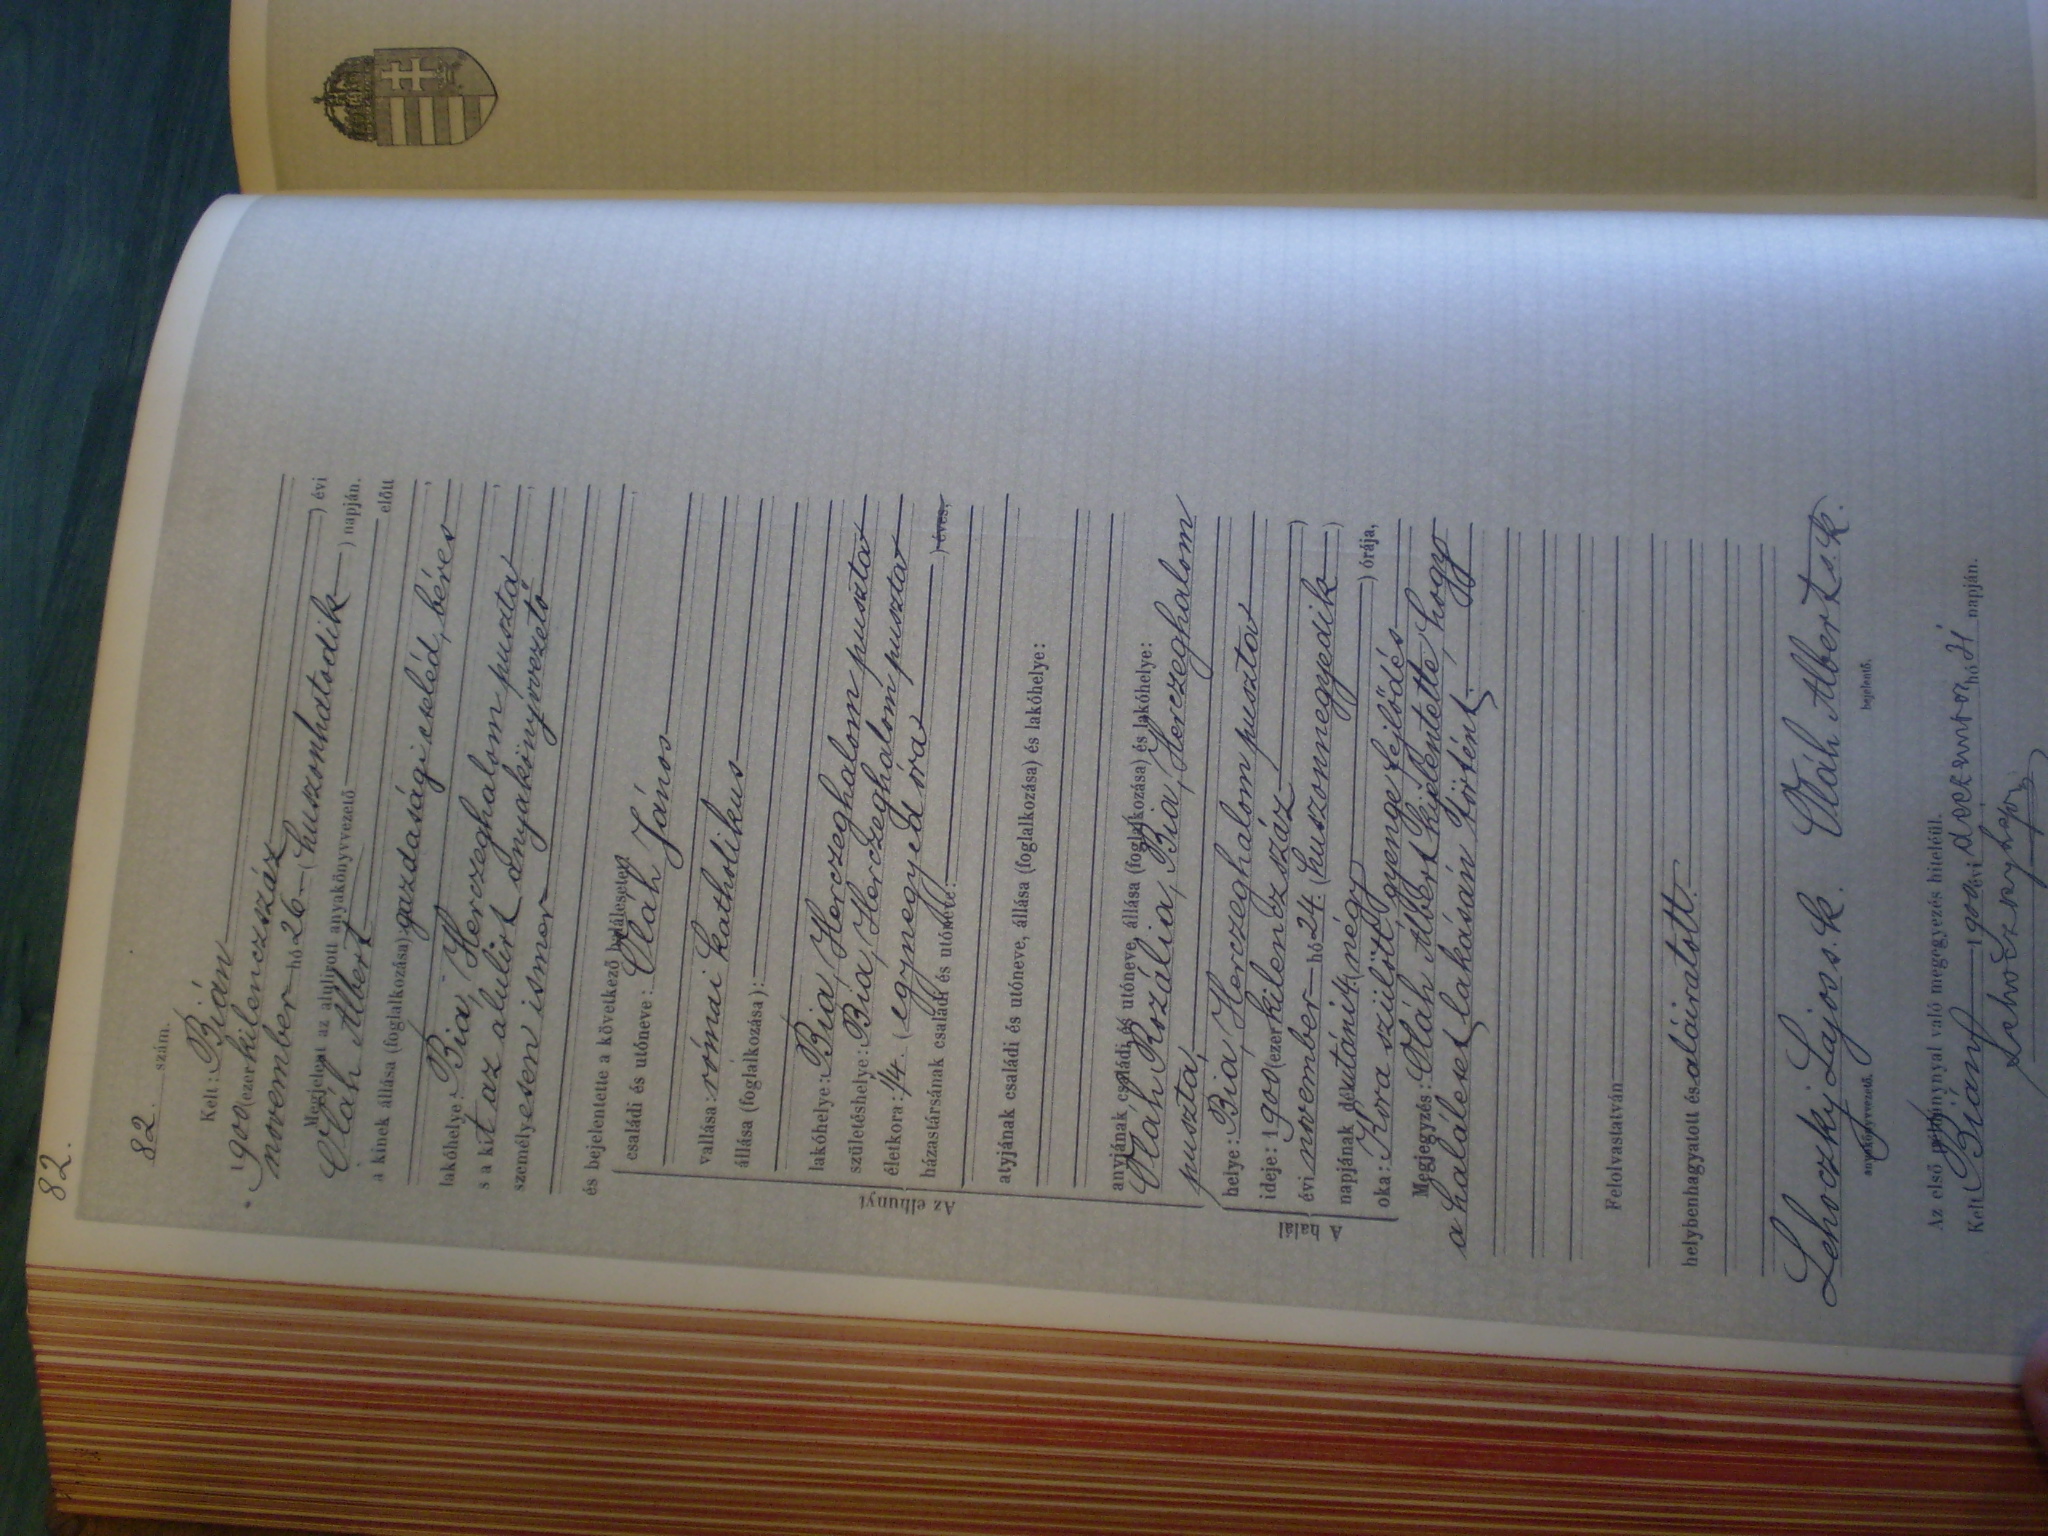 82.
82. szám.
Kelt: Bián
1900 (ezerkilenczszáz) évi
november hó 26 (huszonhatodik) napján.
Megjelent az alulírott anyakönyvvezető előtt
Oláh Albert
a kinek állása (foglalkozása): gazdasági cseléd, béres,
lakóhelye: Bia, Herczeghalom puszta,
s a kit az alulirt anyakönyvvezető
személyesen ismer
és bejelentette a következő halálesetet:
családi és utóneve: Oláh János
vallása: római katholikus
állása (foglalkozása):
lakóhelye: Bia, Herczeghalom puszta
születéshelye: Bia, Herczeghalom puszta
életkora: 1/4. (egynegyed óra) éves,
házastársának családi és utóneve:
atyjának családi és utóneve, állása (foglalkozása) és lakóhelye:
anyjának családi és utóneve, állása (foglalkozása) és lakóhelye:
Oláh Rozália, Bia, Herczeghalom
puszta,
Az elhunyt
helye: Bia, Herczeghalom puszta
ideje: 1900 (ezer kilenczszáz)
évi november hó 24. (huszonnegyedik)
napjának délutáni 4 (négy) órája,
oka: Kora szülött gyenge fejlődés
A halál
Megjegyzés: Oláh Albert kijelentette, hogy
a haláleset lakásán történt.
Felolvastatván
helybenhagyatott és aláiratott.
Lehoczky Lajos s. k. Oláh Albert s. k.
anyakönyvvezető. bejelentő.
Az első példánynyal való megegyezés hiteléül.
Kelt Bián 1900 évi december hó 31 napján.
Lehoczky Lajos